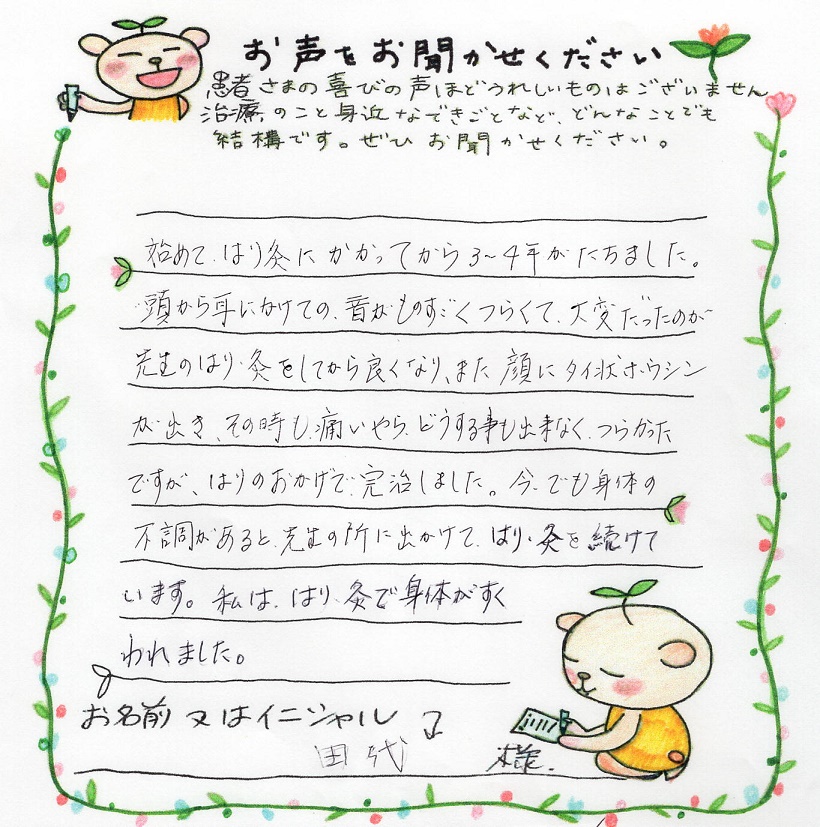 お声をお聞かせください
患者さまの喜びの声ほどうれしいものはございません
治療のこと身近なできごとなど、どんなことでも
結構です。ぜひお聞かせください。
始めて、はり灸にかかってから3~4年がたちました。
頭から耳にかけての、音がものすごくつらくて、大変だったのが
先生のはり・灸をしてから良くなり、また顔にタイ状ホウシン
が出き、その時も、痛いやら、どうする事も出来なく、つらかった
ですが、はりのおかげで、完治しました。今でも身体の
不調があると、先生の所に出かけて、はり・灸を続けて
います。私は、はり、灸で身体がすく
われました。
お名前又はイニシャル
田代 様.